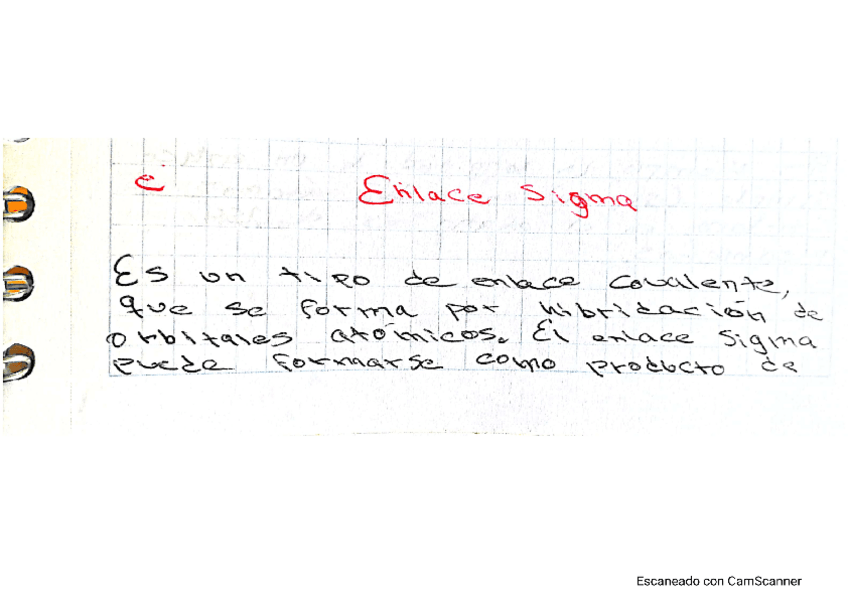 e Enlace Sigma
Es un tipo de enlace covalente,
que se forma por hibridación de
orbitales atómicos. El enlace Sigma
puede formarse como producto de
Escaneado con CamScanner